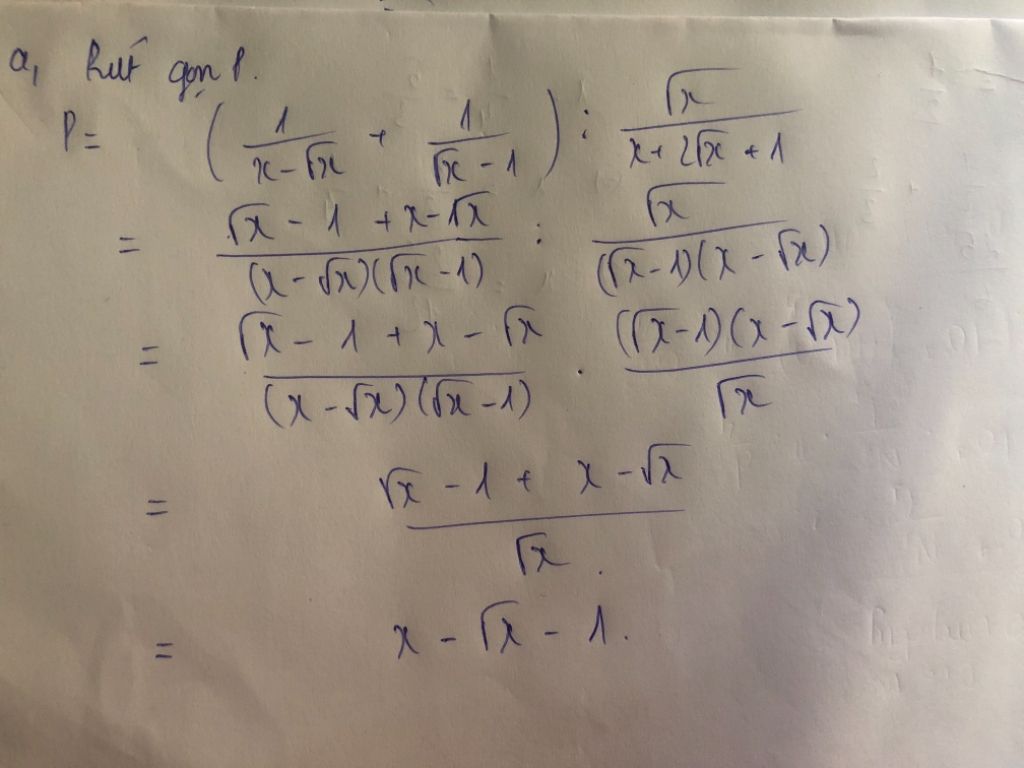 a, Rút gọn P.
P = (1/(x-√x) + 1/(√x-1)) : √x/(x+2√x+1)
= (√x-1+x-√x)/((x-√x)(√x-1)) : √x/((√x-1)(x-√x))
= (√x-1+x-√x)/((x-√x)(√x-1)) . ((√x-1)(x-√x))/√x
= (√x-1+x-√x)/√x.
= x-√x-1.